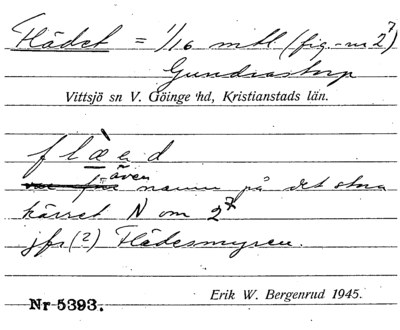 Flädet = 1/16 mtl (fig.-nr 2⁷)
Gundrastorp
Vittsjö sn V. Göinge hd, Kristianstads län.
f l æ̀ e d
även
namn på det stora
kärret N om 2⁷
jfr (2) Flädesmyren.
Nr 5393.
Erik W. Bergenrud 1945.